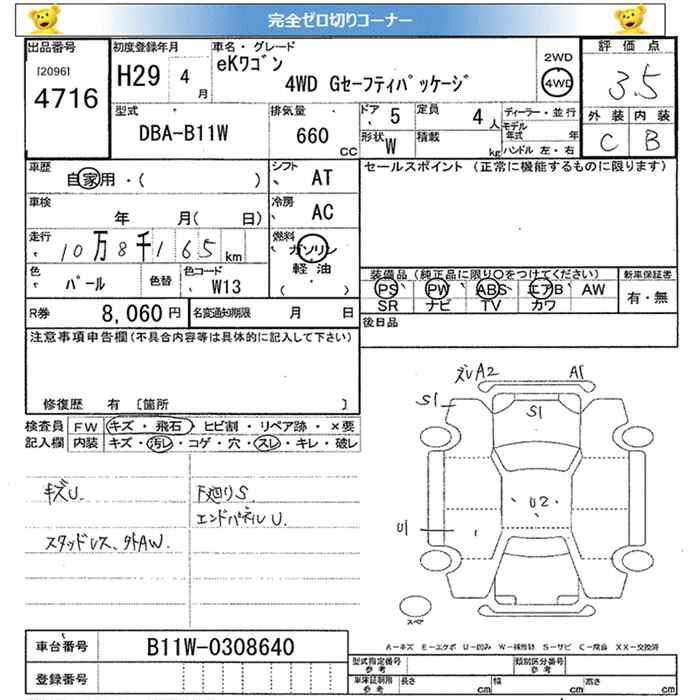 完全ゼロ切りコーナー
出品番号 初度登録年月 車名・グレード 2WD 評価点
[2096] H29 4月 eKワゴン 4WD 3.5
4716 4WD Gセーフティパッケージ
型式 排気量 ドア 5 定員 4人 ディーラー・並行 外装 内装
DBA-B11W 660CC 形状 W 積載 kg モデル年式 年 C B
ハンドル 左・右
車歴 自家用・( ) シフト AT セールスポイント (正常に機能するものに限ります)
車検 年 月( 日) 冷房 AC
走行 10万8千165km 燃料 ガソリン
軽油
( )
色 パール 色替 色コード W13 装備品 (純正品に限り○をつけてください) 新車保証書
PS PW ABS エアB AW 有・無
SR ナビ TV カワ
R券 8,060円 名変通知期限 月 日 後日品
注意事項申告欄(不具合内容等は具体的に記入して下さい)
修復歴 有 〔箇所 〕
ズレA2 A1
S1 S1
検査員 FW キズ・飛石・ヒビ割・リペア跡・×要
記入欄 内装 キズ・汚レ・コゲ・穴・スレ・キレ・破レ
キズU. 下廻りS.
エンドパネルU.
U2
スタッドレス、外AW. U1
スペア
車台番号 B11W-0308640
A-キズ E-エクボ U-凹み W-補修跡 S-サビ C-腐食 XX-交換済
登録番号 型式指定番号 参考 類別区分番号 参考
車庫証明用 参考 長さ cm 幅 cm 高さ cm